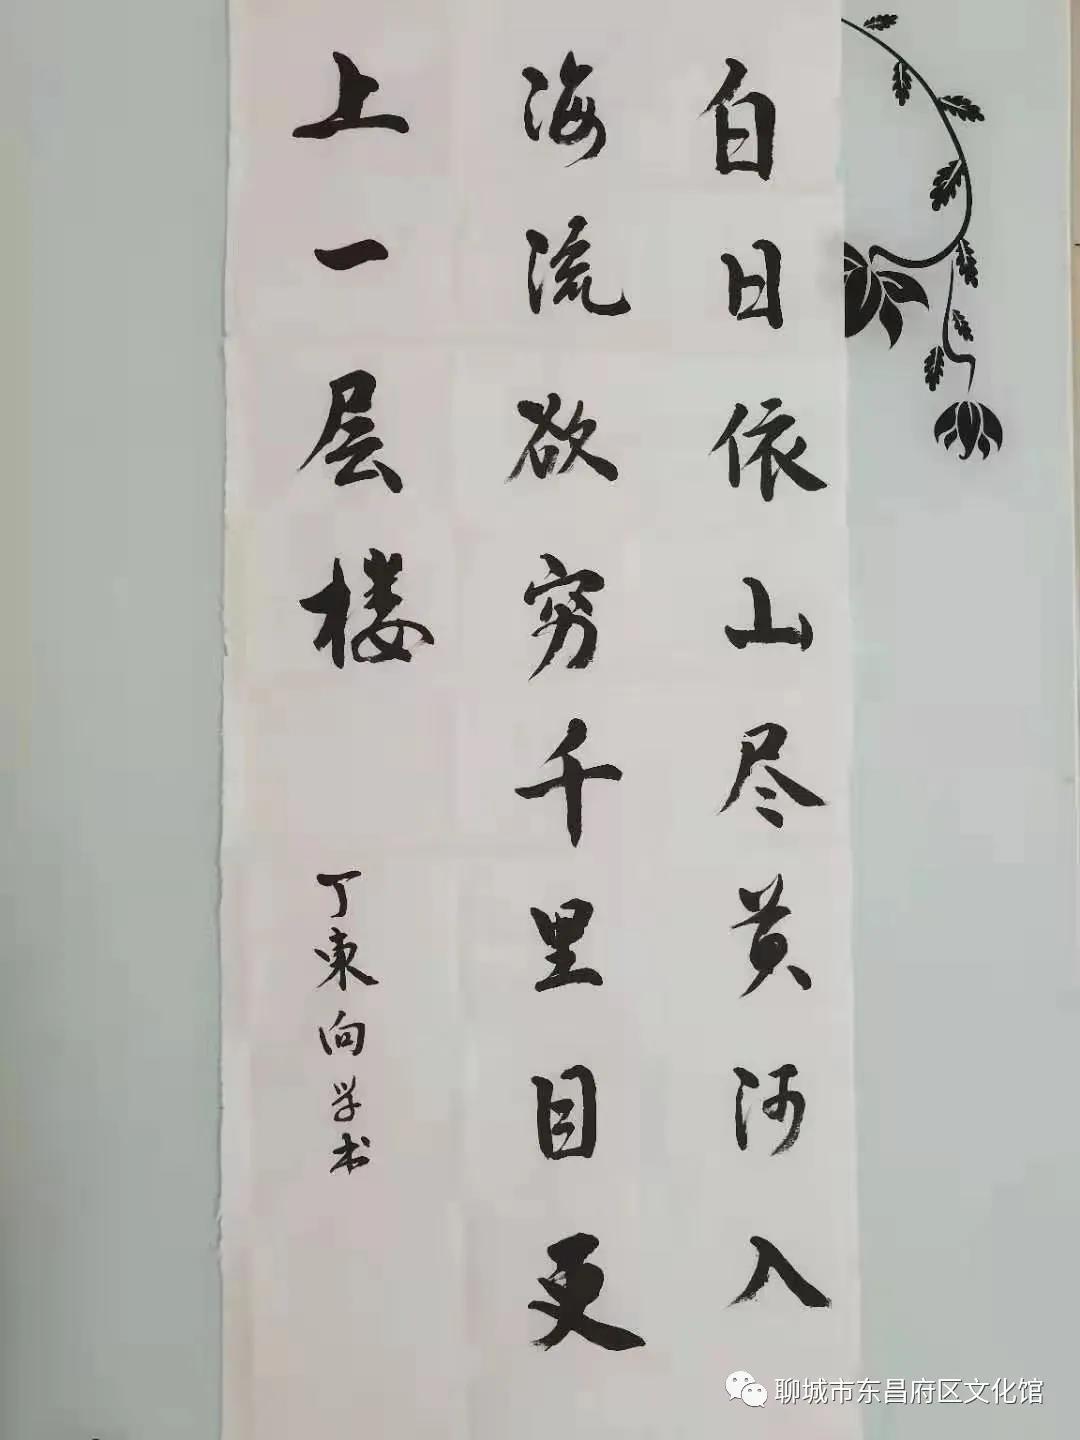 白日依山尽黄河入
海流欲穷千里目更
上一层楼
丁東向学书
聊城市东昌府区文化馆